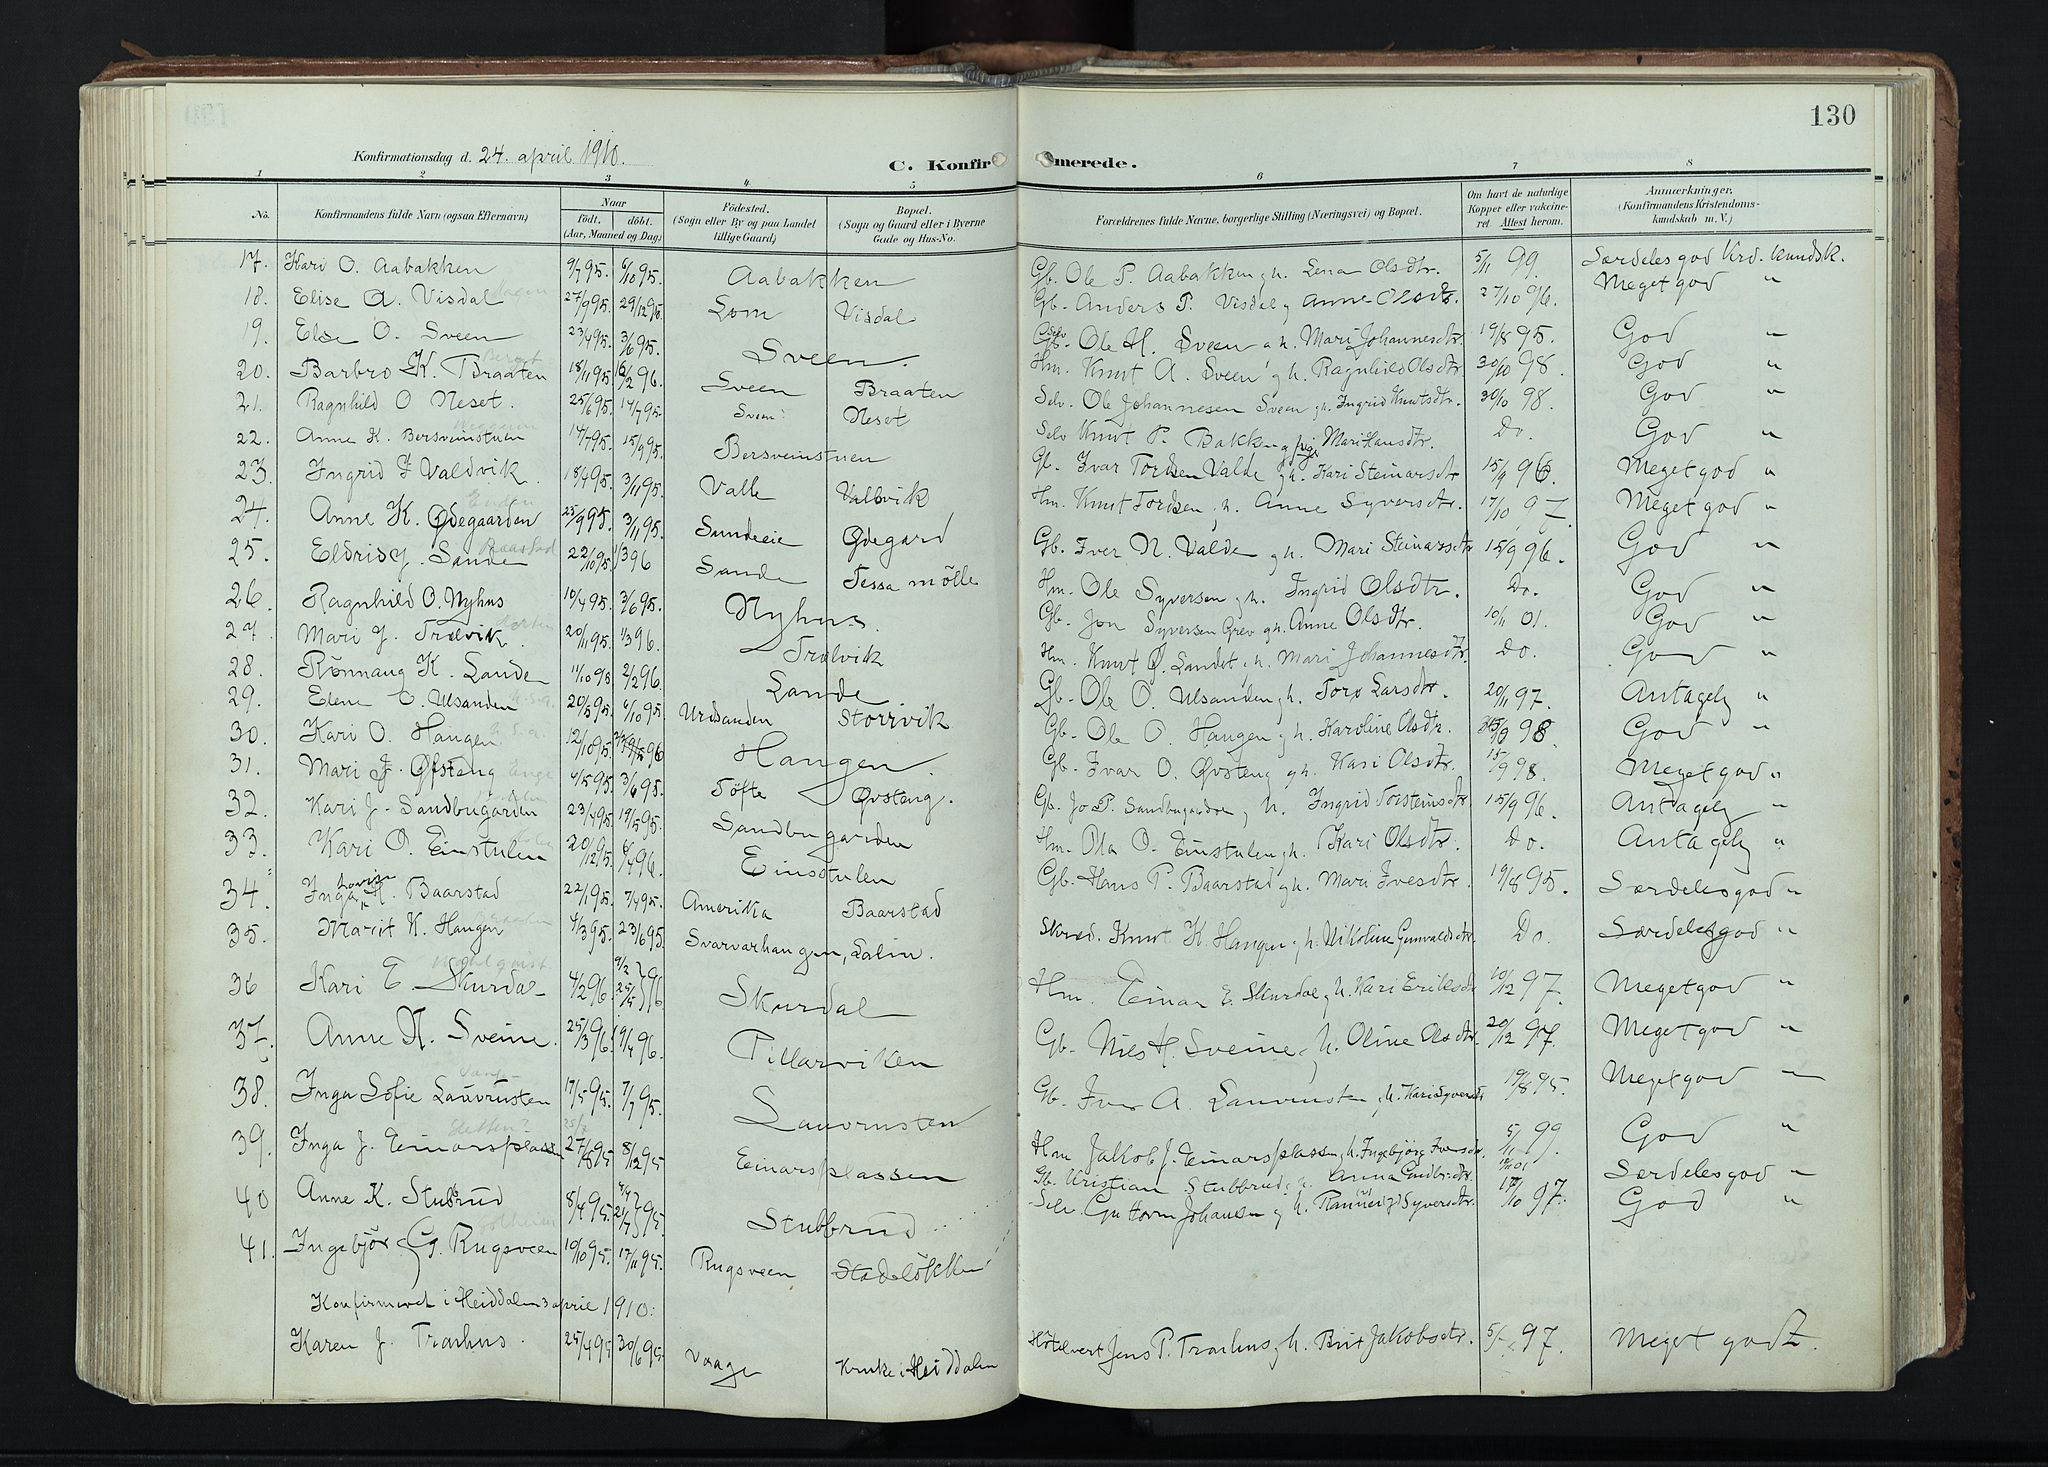 130
Konfirmationsdag d. 24. april 1910.
C. Konfirmerede.
1 2 3 4 5 6 7 8
No. Konfirmandens fulde Navn (ogsaa Efternavn) Naar født. døbt. (Aar, Maaned og Dag) Fødested. (Sogn eller By og paa Landet tillige Gaard) Bopæl. (Sogn og Gaard eller i Byerne Gade og Hus-No. Forældrenes fulde Navne, borgerlige Stilling (Næringsvei) og Bopæl. Om havt de naturlige Kopper eller vakcineret. Attest herom. Anmærkninger. (Konfirmandens Kristendomskundskab m. V.)
17. Kari O. Aabakken 9/7 95. 6/10 95. Aabakken Gb. Ole P. Aabakken g h. Lena Olsdtr. 5/11 99. Særdeles god Krd. kundsk.
18. Elise A. Visdal 27/9 95. 29/12 95. Lom Visdal Gb. Anders P. Visdal g Anne Olsdtr. 27/10 96. Meget god "
19. Else O. Sveen 23/4 95. 3/6 95. Sveen. Ole H. Sveen g h. Mari Johannesdtr. 19/8 95. God "
20. Barbro K. Braaten 18/11 95. 16/2 96. Sveen Braaten Hm. Knut A. Sveen g h. Ragnhild Olsdtr 30/10 98. God "
21. Ragnhild O Neset. 25/6 95. 14/7 95. Sveen Neset Selv. Ole Johannesen Sveen g h. Ingrid Knutsdtr. 30/10 98. God "
22. Anne K. Bersveinstuen 14/7 95. 15/9 95. Bersveinstuen Selv Knut P. Bakken g Mari Hansdtr. Do. God "
23. Ingrid I Valdvik 18/9 95. 3/11 95. Valle Valbvik Gb. Ivar Tordsen Valde g h. Kari Steinarsdtr 15/9 96. Meget god "
24. Anne K. Ødegaarden 25/9 95. 3/11 95. Sundeeie Ødegard Hm. Knut Tordsen g h. Anne Syversdtr. 17/10 97. Meget god "
25. Eldrid J. Sande 22/10 95. 1/3 96 Sande Tessa mölle Gb. Iver N. Valde g h. Mari Steinarsdtr 15/9 96. God "
26. Ragnhild O. Nyhus 10/4 95. 3/6 95. Nyhus. Hm. Ole Syversen g h. Ingrid Olsdtr. Do. God "
27. Mari J. Trolvik. 20/11 95. 1/3 96. Trolvik Gb. Jon Syversen Grev g h. Anne Olsdtr. 10/11 01. God "
28. Rönnaug K. Sande 11/10 95 2/2 96. Sande Hm. Knut Ø. Sandet g h. Mari Johannesdtr. Do. God "
29. Elene O Ulsanden U.S.A. 20/5 95. 6/10 95. Uldsanden Storvik Gb. Ole O. Ulsanden g h. Toro Larsdtr. 20/11 97. Antagely "
30. Kari O. Haugen U.S.A. 12/10 95. 96 Haugen. Gb. Ole O. Haugen g h. Karoline Olsdtr. 98. God "
31. Mari I. Øfsteng Enge 4/5 95. 3/6 95. Töfte Øvsteng. Gb. Ivar O. Øvsteng g h. Kari Olsdtr. 15/9 98. Meget god "
32. Kari J. Sandbugarden 23/4 95. 19/5 95. Sandbugarden Gb. Jo P. Sandbugarden g h. Ingrid Torsteinsdtr 15/9 96. Antagely "
33. Kari O. Einstulen 20/12 95. 6/4 96. Einsstulen Hm. Ola O. Einstulen g h. Kari Olsdtr. Do. Antagely "
34. Inga Lovise H. Baarstad 22/1 95. 7/4 95. Amerika Baarstad Gb. Hans P. Baarstad g h. Mari Ivesdtr. 19/8 95. Særdeles god "
35. Marit K. Haugen Braaten 4/3 95. 23/6 95. Svarvarhaugen, Selin. Skræd. Knut K. Haugen g h. Nikoline Gunvaldsdtr. Do. Særdeles god "
36 Kari E. Skurdal 4/2 96. 9/2 25/5 96 Skurdal Hm. Einar E. Skurdal g h. Kari Eriksdtr 10/12 97. Meget god "
37. Anne N. Sveine. 25/3 96. 19/4 96. Pillarviken Gb. Nils H. Sveine g h. Oline Olsdtr. 20/12 97. Meget god "
38. Inga Sofie Laurusten 17/5 95. 7/7 95. Laurusten Gb. Iver A. Laurusten g h. Kari Syversdtr 19/8 95. Meget god "
39. Inga J. Einarsplassen 27/8 95 8/12 95 Einarsplassen Hm Jakob J. Einarsplassen g h. Ingebjörg Iversdtr. 5/11 99. God "
40 Anne K. Stubbrud 8/4 95. 21/7 95. Stubbrud Gb. Kristian Stubbrud g h. Anna Gudbrdtr. Særdeles god "
41. Ingebjör G. Rugsveen 10/10 95. 17/11 95. Rugsveen Stadelökken Selv. Guttorm Johansen g h. Rannveig Syversdtr. 17/10 97. God "
Konfirmeret i Heiddalen 3 april 1910:
Karen J. Traahus. 25/4 95 30/6 95. Vaage Kruke i Heiddalen Hotelvert Jens P. Traahus g h. Brit Jakobsdtr. 97. Meget godt.